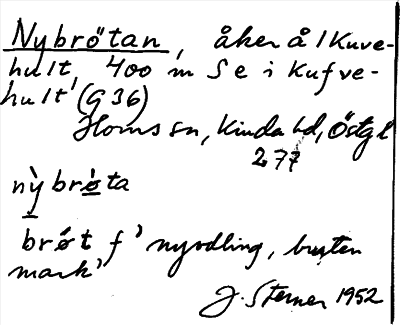 Nybrötan, åker å 1 Kuve-
hult, 400 m S e i Kufve-
hult (G 36)
Horns sn, Kinda hd, Östgl
277
nỳ brǿta
brǿt f' nyodling, bruten
mark'
J. Sterner 1952